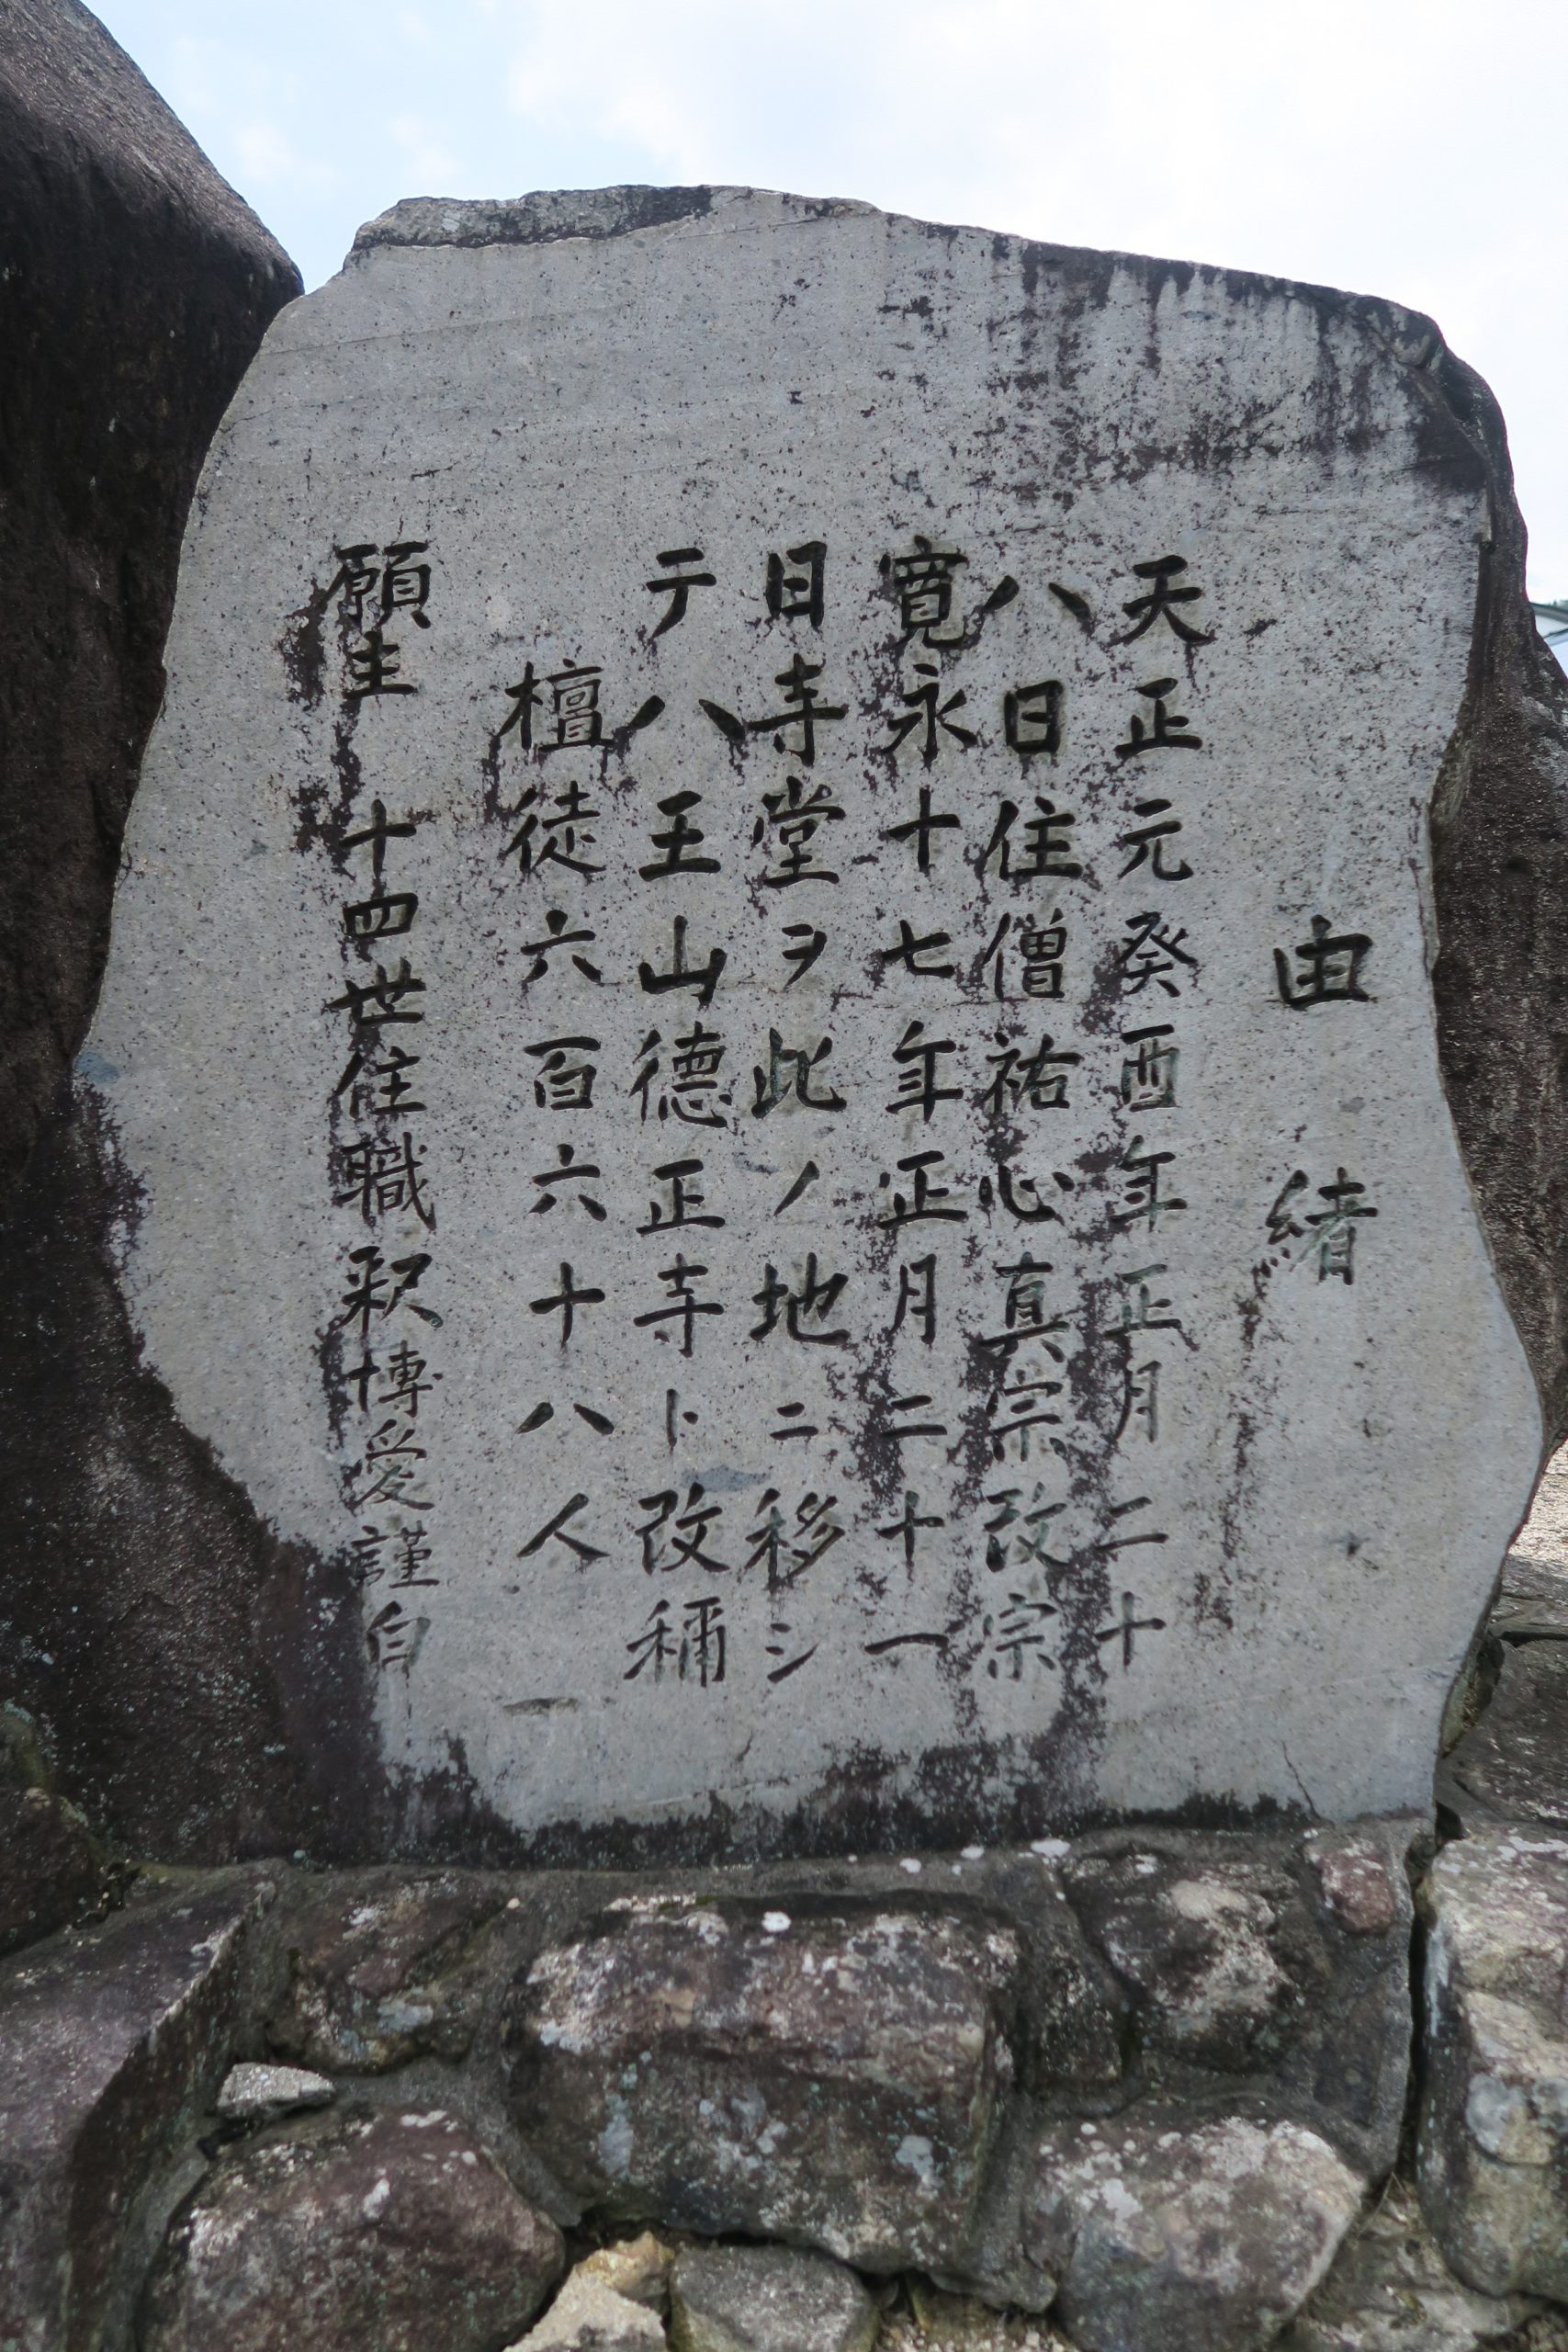 由緒
天正元癸酉年正月二十
八日住僧祐心真宗改宗
寛永十七年正月二十一
日寺堂ヲ此ノ地ニ移シ
テ八王山德正寺ト改稱
檀徒六百六十八人
願主 十四世住職釈博愛謹白